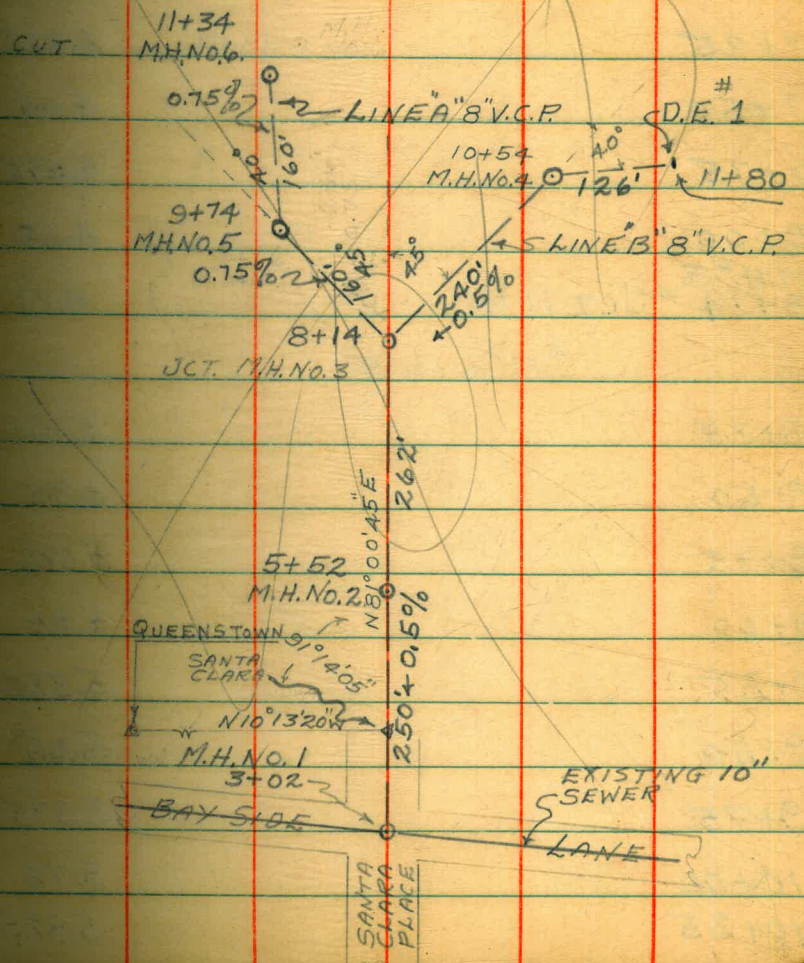 11+34
CUT
M.H.No.6.
0.75%
LINE "A" 8" V.C.P.
D.E. #1
40°
160'
10+54
M.H.No.4
40°
126'
11+80
9+74
M.H.No.5
0.75%
160'
45°
45°
LINE "B" 8" V.C.P.
240'
0.5%
8+14
JCT. M.H.No.3
262'
N81°00'45"E
5+52
M.H.No.2
QUEENSTOWN
91°14'05"
SANTA
CLARA
N10°13'20"W
250'
0.5%
M.H.No.1
3+02
EXISTING 10"
SEWER
BAY SIDE
LANE
SANTA
CLARA
PLACE